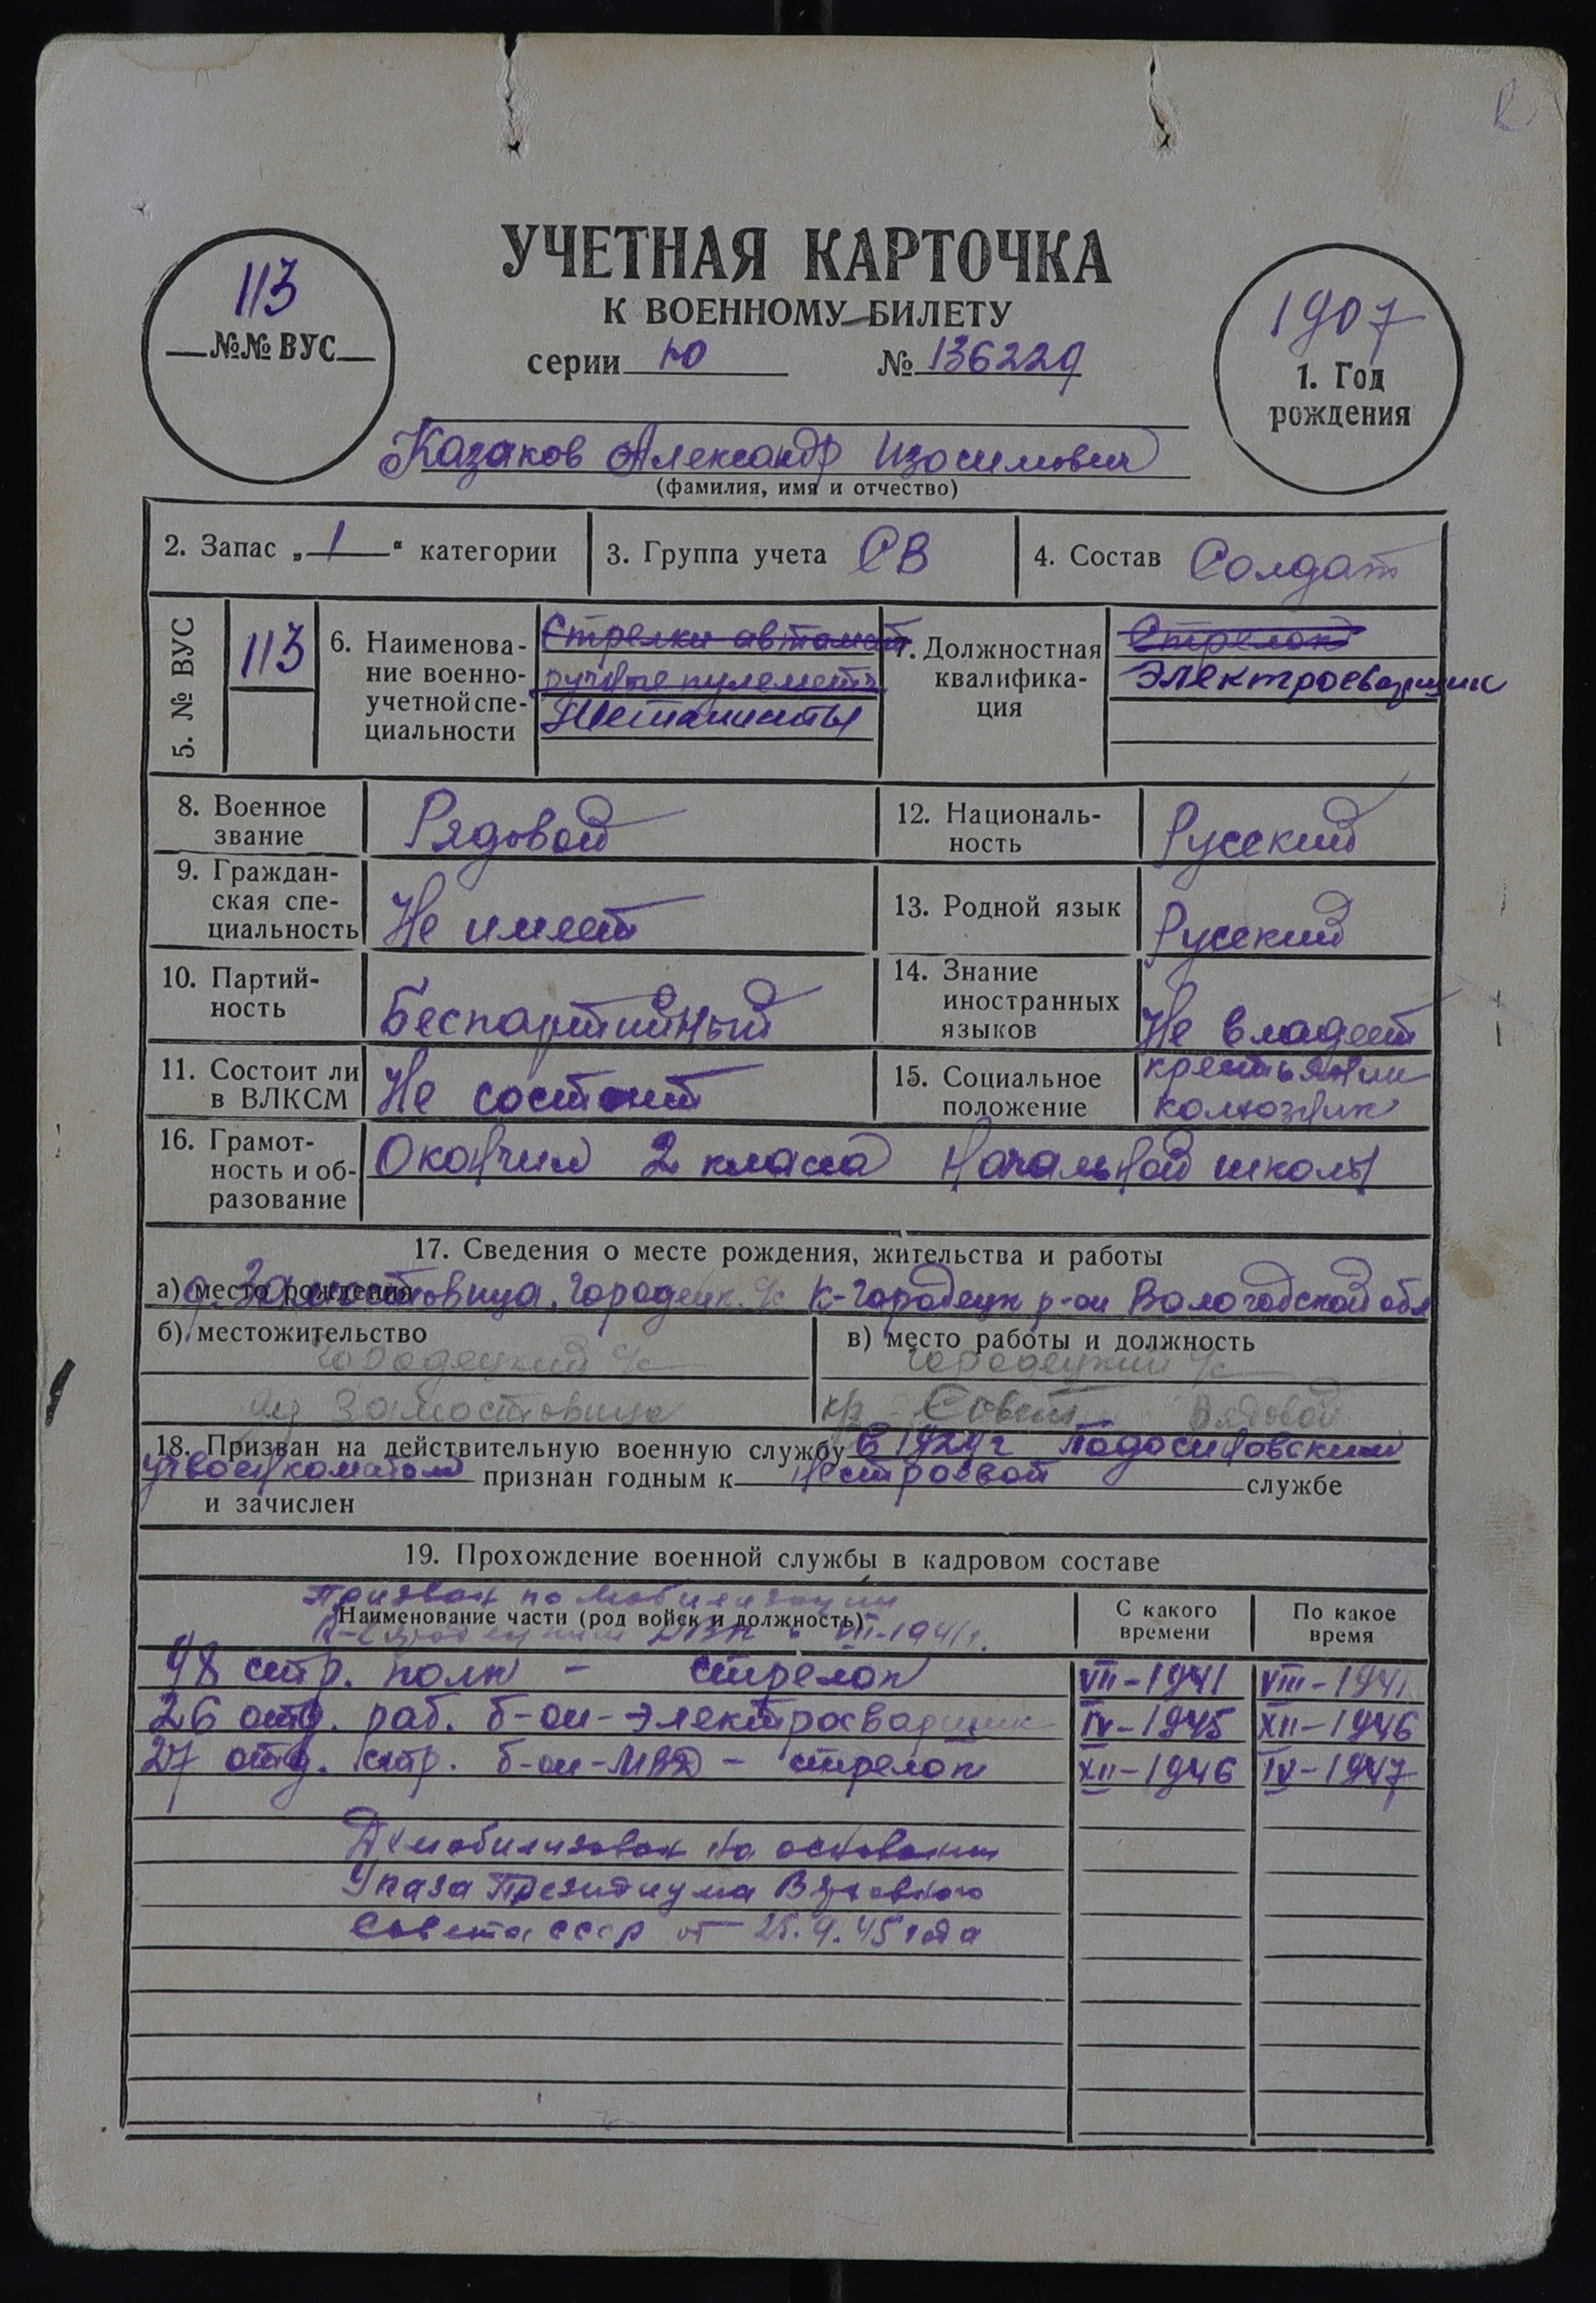 УЧЕТНАЯ КАРТОЧКА
К ВОЕННОМУ БИЛЕТУ
серии Ю № 136229
113
№№ ВУС
1907
1. Год
рождения
Казаков Александр Изосимович
(фамилия, имя и отчество)
2. Запас „ 1 “ категории
3. Группа учета СВ
4. Состав Солдат
5. № ВУС
113
6. Наименова-
ние военно-
учетной спе-
циальности
Стрелки автомат
ручные пулеметч
7. Должностная
квалифика-
ция
Стрелок
Электросварщик
8. Военное
звание
Рядовой
12. Националь-
ность
Русский
9. Граждан-
ская спе-
циальность
Не имеет
13. Родной язык
Русский
10. Партий-
ность
Беспартийный
14. Знание
иностранных
языков
Не владеет
11. Состоит ли
в ВЛКСМ
Не состоит
15. Социальное
положение
крестьянин
колхозник
16. Грамот-
ность и об-
разование
Окончил 2 класса начальной школы
17. Сведения о месте рождения, жительства и работы
а) место рождения
д. Замостовица, Городецк. с/с К-Городецк р-он Вологодской обл
б) местожительство
Городецкий с/с
Замостовица
в) место работы и должность
Городецкий с/с
Совет Рядовой
18. Призван на действительную военную службу В 1929 г Подосиновским
признан годным к нестроевой службе
и зачислен
19. Прохождение военной службы в кадровом составе
Призван по мобилизации
Наименование части (род войск и должность)
К-Городецким РВК в VII-1941г.
С какого
времени
По какое
время
98 стр. полк - стрелок VII-1941 VIII-1941
26 отд. раб. б-он - электросварщик IV-1945 XII-1946
27 отд. стр. б-он - МВД - стрелок XII-1946 IV-1947
Демобилизован на основании
Указа Президиума Верховного
Совета СССР от 25.9.45 года